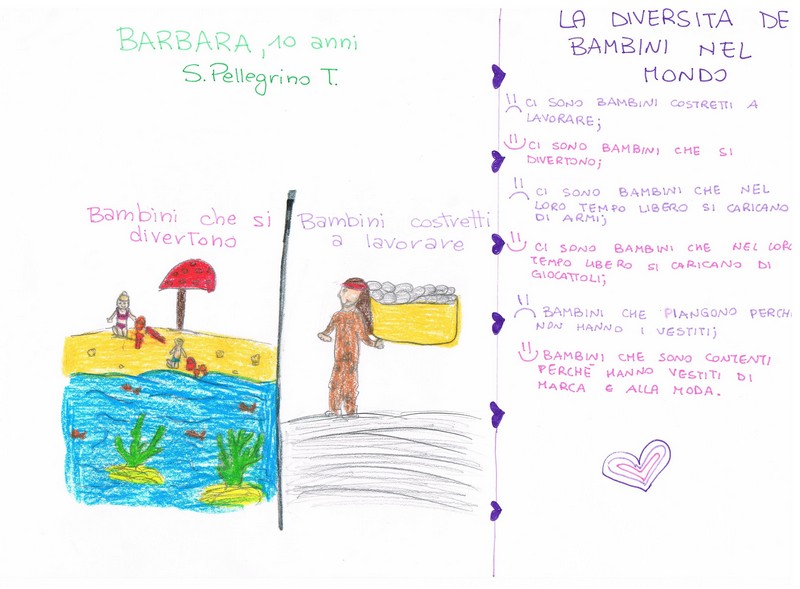 BARBARA, 10 anni
S. Pellegrino T.
Bambini che si
divertono
Bambini costretti
a lavorare
LA DIVERSITA DE
BAMBINI NEL
MONDO
CI SONO BAMBINI COSTRETTI A
LAVORARE;
CI SONO BAMBINI CHE SI
DIVERTONO;
CI SONO BAMBINI CHE NEL
LORO TEMPO LIBERO SI CARICANO
DI ARMI;
CI SONO BAMBINI CHE NEL LORO
TEMPO LIBERO SI CARICANO DI
GIOCATTOLI;
BAMBINI CHE PIANGONO PERCH
NON HANNO I VESTITI;
BAMBINI CHE SONO CONTENTI
PERCHÈ HANNO VESTITI DI
MARCA E ALLA MODA.